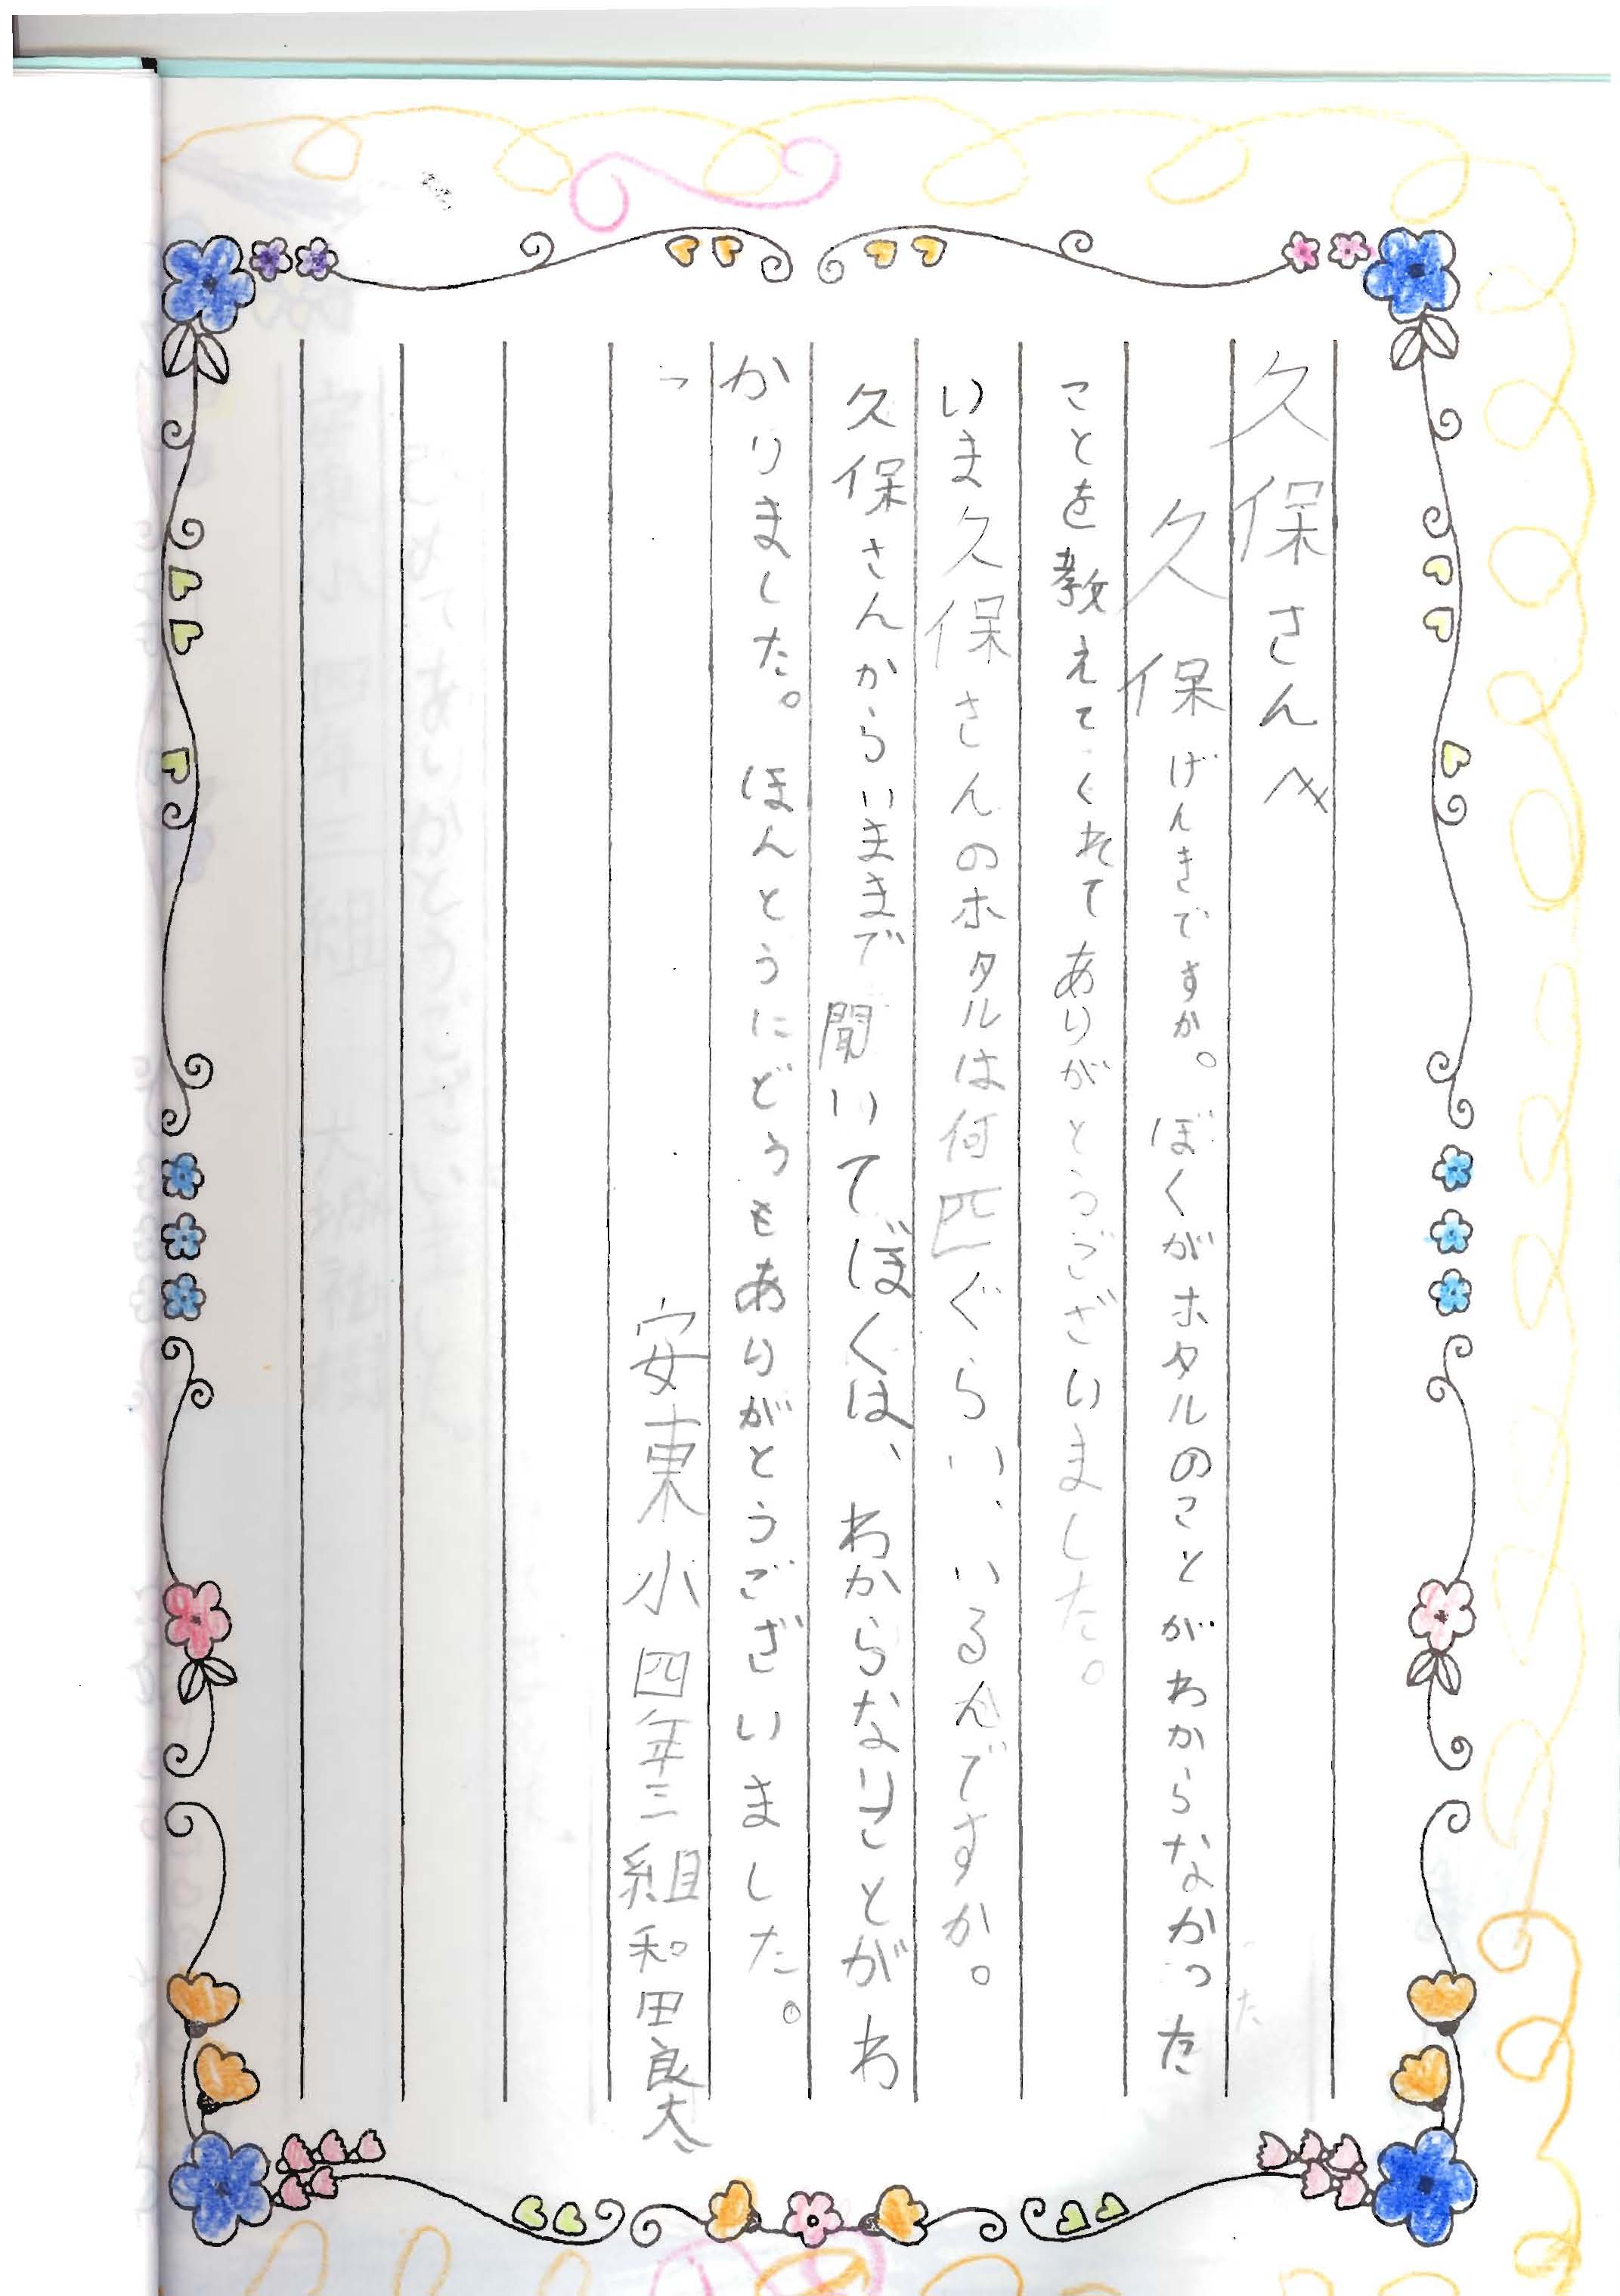 久保さんへ
久保げんきですか。ぼくがホタルのことがわからなかった
ことを教えてくれてありがとうございました。
いま久保さんのホタルは何匹ぐらい、いるんですか。
久保さんからいままで聞いてぼくは、わからないことがわ
かりました。ほんとうにどうもありがとうございました。
安東小四年三組和田良太